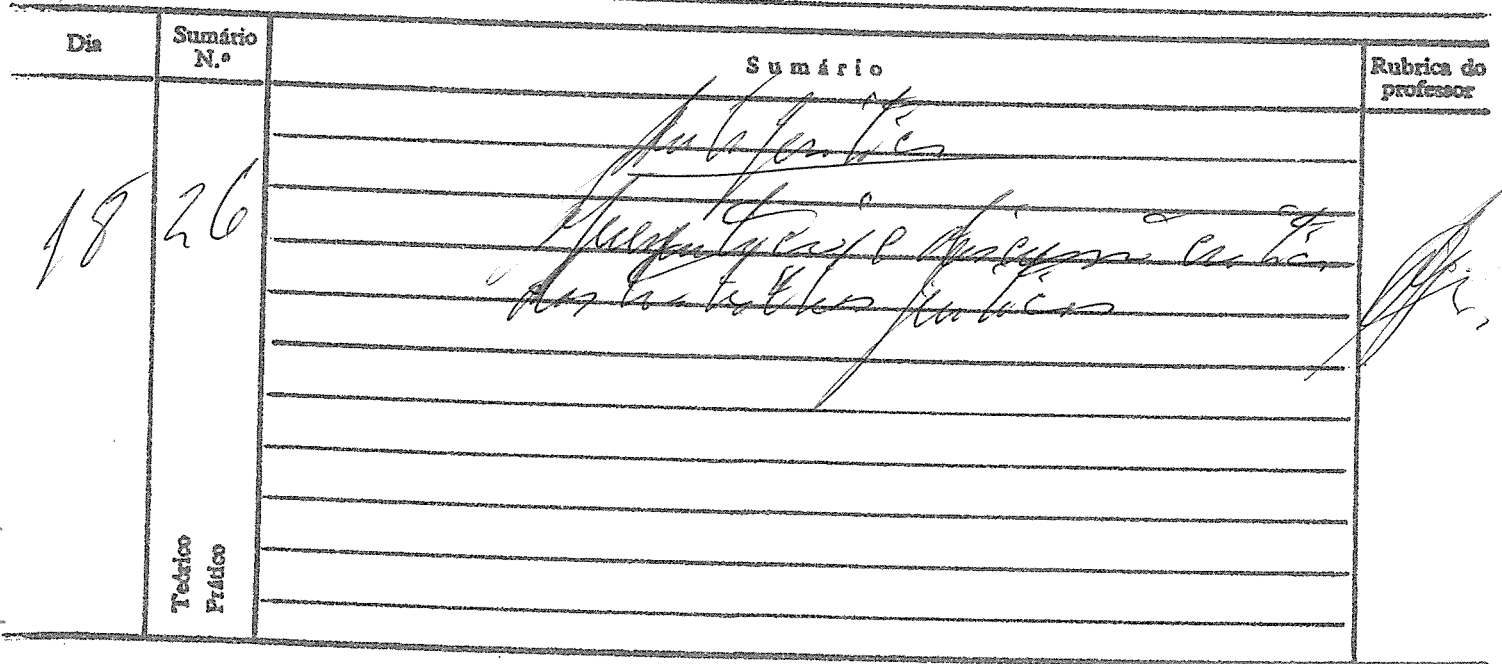 Dia
Sumário
N.º
Sumário
Rubrica do
professor
18
26
Aula prática
Apresentação e discussão crítica
dos trabalhos práticos
Teórico
Prático